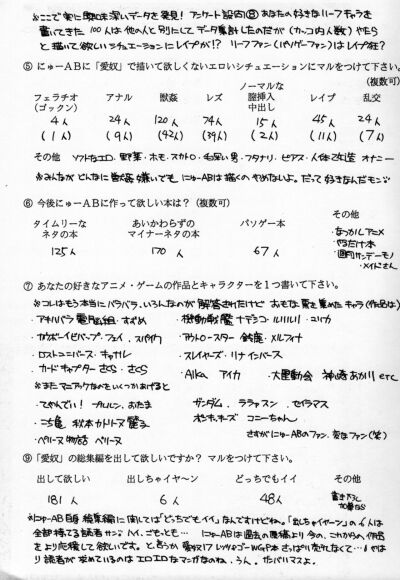 ※ここで実に興味深いデータを発見！ アンケート設問⑧あなたの好きなリーフキャラを
書いてきた100人は他の人と別にしてデータ集計したのだが(カッコ内人数)やたら
と描いて欲しいシチュエーションにレイプが!? リーフファン(パソゲーファン)はレイプ狂？
⑤ にゅーＡＢに「愛奴」で描いて欲しくないエロいシチュエーションにマルをつけて下さい。
(複数可)
フェラチオ(ゴックン) アナル 獣姦 レズ ノーマルな膣挿入中出し レイプ 乱交
4人 24人 120人 74人 15人 45人 24人
(1人) (9人) (42人) (39人) (2人) (11人) (7人)
その他 ソフトなエロ 野菜・ホモ・スカトロ・毛深い男・フタナリ・ピアス・人体改造 オナニー
※みんながどんなに獣姦嫌いでも にゅーABは描くのやめないよ。だって好きなんだモン
⑥ 今後にゅーＡＢに作って欲しい本は？（複数可）
タイムリーなネタの本 あいかわらずのマイナーネタの本 パソゲー本 その他
125人 170人 67人
・なつかしアニメ
・やるだけ本
・メイドさん
⑦ あなたの好きなアニメ・ゲームの作品とキャラクターを１つ書いて下さい。
※コレはもう本当にバラバラ。いろんなのが解答されたけど おもな票を集めたキャラ(作品)は
・アキハバラ電脳組・すずめ ・機動戦艦ナデシコ・ルリルリ・ユリカ
・カウボーイビバップ・フェイ、スパイク ・アウトロースター 鈴鹿・メルフィナ
・ロストユニバース・キャナル ・スレイヤーズ・リナ インバース
・カードキャプターさくら・さくら ・AIKa アイカ ・大運動会 神崎あかり etc
※またマニアックなのをいくつかあげると
・てやんでい！プルルン、おたま ガンダム ララァスン セイラマス
・こち亀 秋本カトリーヌ麗子 コニーちゃん
・ペリーヌ物語 ペリーヌ さすがにゅーABのファン、変なファン(笑)
⑨「愛奴」の総集編を出して欲しいですか？ マルをつけて下さい。
出して欲しい 出しちゃイヤ〜ン どっちでもイイ その他
181人 6人 48人 書き下ろし加筆なら
※にゅーAB自身 総集編に関しては「どっちでもイイ」なんですけどねぇ。「出しちゃイヤーン」の6人は
全部持てる読者サン？ ハイ、ごもっとも… にゅーABは過去の原稿より今の、これからの作品
をより応援して欲しいです。
り読者が求めているのはエロエロなマンガなのね、うん。ガンバリマスよ。